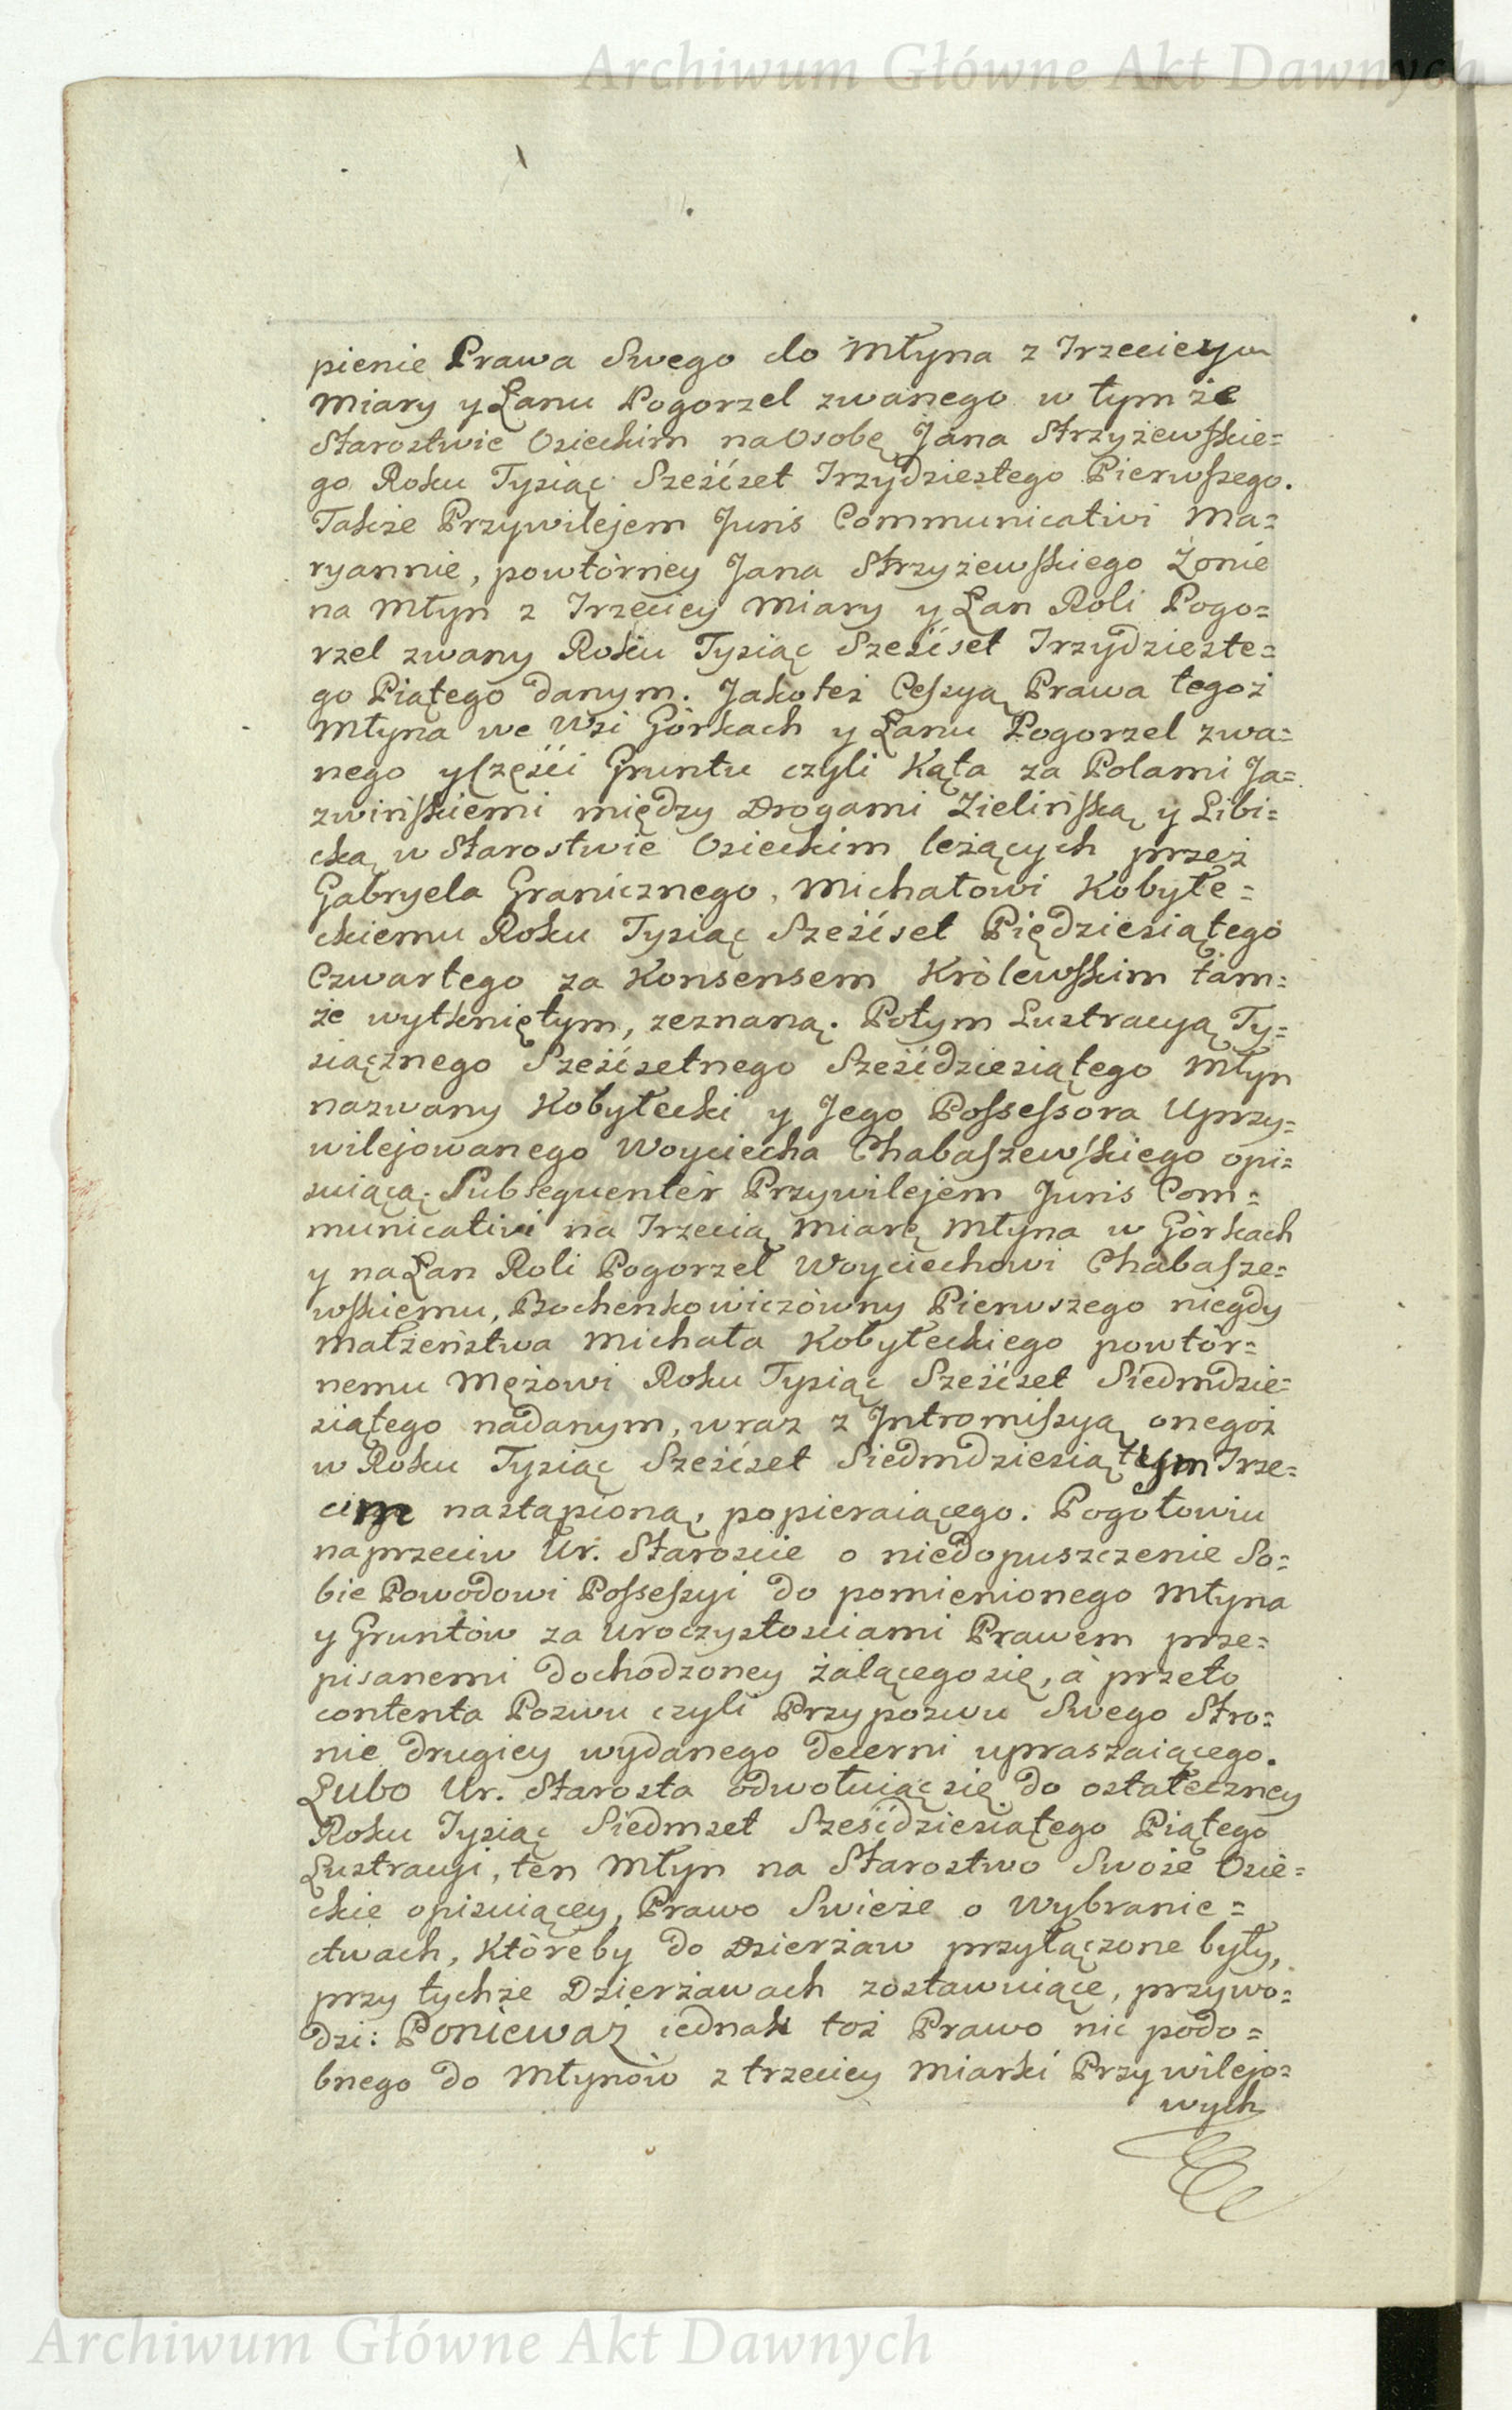 Archiwum Główne Akt Dawnych
pienie Prawa Swego do Młyna z Trzeciey
Miary y Łanu Pogorzel zwanego w tymże
Starostwie Osieckim na Osobę Jana Strzyżewskie=
go Roku Tysiąc Sześćset Trzydziestego Pierwszego.
Także Przywilejem Juris Communicativi Ma=
ryannie, powtórney Jana Strzyżewskiego Żonie
na Młyn z Trzeciey Miary y Łan Roli Pogo=
rzel zwany Roku Tysiąc Sześćset Trzydzieste=
go Piątego danym. Jakoteż Cessyą Prawa tegoż
Młyna we Wsi Górkach y Łanu Pogorzel zwa=
nego y Części Gruntu czyli Kąta za Polami Ja=
zwińskiemi między Drogami Zielińską y Libi=
cką w Starostwie Osieckim leżących przez
Gabryela Granicznego, Michałowi Kobyłe=
ckiemu Roku Tysiąc Sześćset Piędziesiątego
Czwartego za Konsensem Królewskim tam=
że wytkniętym, zeznaną. Potym Lustracyą Ty=
siącznego Sześćsetnego Sześćdziesiątego Młyn
nazwany Kobyłecki y Jego Possessora Uprzy=
wilejowanego Woyciecha Chabaszewskiego opi=
suiącą. Subsequenter Przywilejem Juris Com=
municativi na Trzecią Miarę Młyna w Górkach
y na Łan Roli Pogorzel Woyciechowi Chabasze=
wskiemu, Bochenkowiczówny Pierwszego niegdy
Małżeństwa Michała Kobyłeckiego powtór=
nemu Mężowi Roku Tysiąc Sześćset Siedmdzie=
siątego nadanym, wraz z Intromissyą onegoż
w Roku Tysiąc Sześćset Siedmdziesiątym Trze=
cim nastąpioną, popieraiącego. Pogotowiu
naprzeciw Ur. Staroście o niedopuszczenie So=
bie Powodowi Possessyi do pomienionego Młyna
y Gruntów za Uroczystościami Prawem prze=
pisanemi dochodzoney żalącego się, a przeto
contenta Pozwu czyli Przypozwu Swego Stro=
nie drugiey wydanego decerni upraszaiącego.
Lubo Ur. Starosta odwołuiąc się do ostateczney
Roku Tysiąc Siedmset Sześćdziesiątego Piątego
Lustracyi, ten Młyn na Starostwo Swoie Osie=
ckie opisuiącey, Prawo Swieże o Wybranie=
ctwach, któreby do Dzierżaw przyłączone były,
przy tychże Dzierżawach zostawuiące, przywo=
dzi: Ponieważ iednak toż Prawo nic podo=
bnego do Młynów z trzeciey Miarki Przywilejo=
wych
Archiwum Główne Akt Dawnych